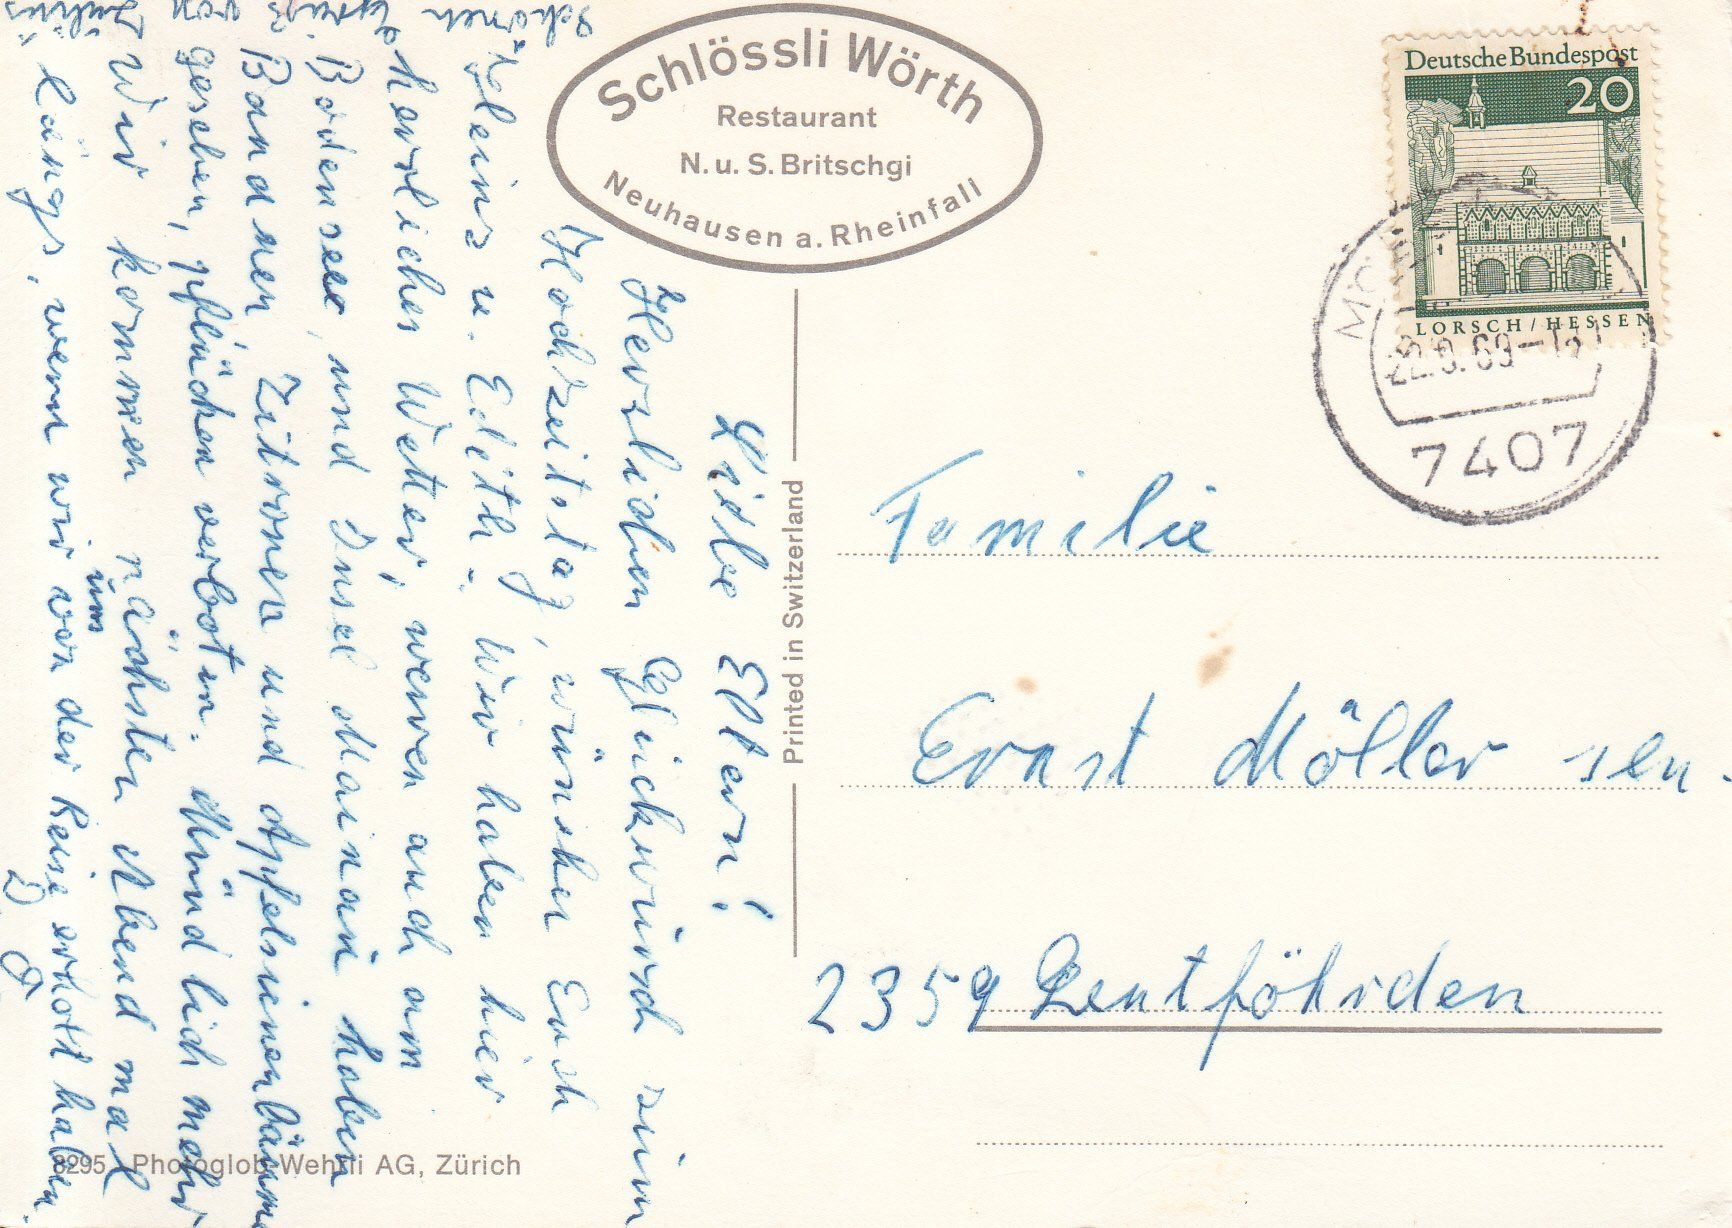 Schlössli Wörth
Restaurant
N. u. S. Britschgi
Neuhausen a. Rheinfall
Deutsche Bundespost
20
LORSCH / HESSEN
7407
Liebe Eltern!
Herzlichen Glückwunsch zum
Hochzeitstag, wünschen Euch
Heinz u. Edith. Wir haben hier
herrliches Wetter, waren auch am
Bodensee, und Insel Mainau haben
Bananen Zitronen und Apfelsinenbäume
gesehen, pflücken verboten. Mündlich mehr
wir kommen nächsten Abend mal
längs, wenn wir uns von der Reise erholt haben.
D. O.
Schönen Gruß von
Printed in Switzerland
Familie
Ernst Möller sen.
2359 Lentföhrden
8295 Photoglob-Wehrli AG, Zürich